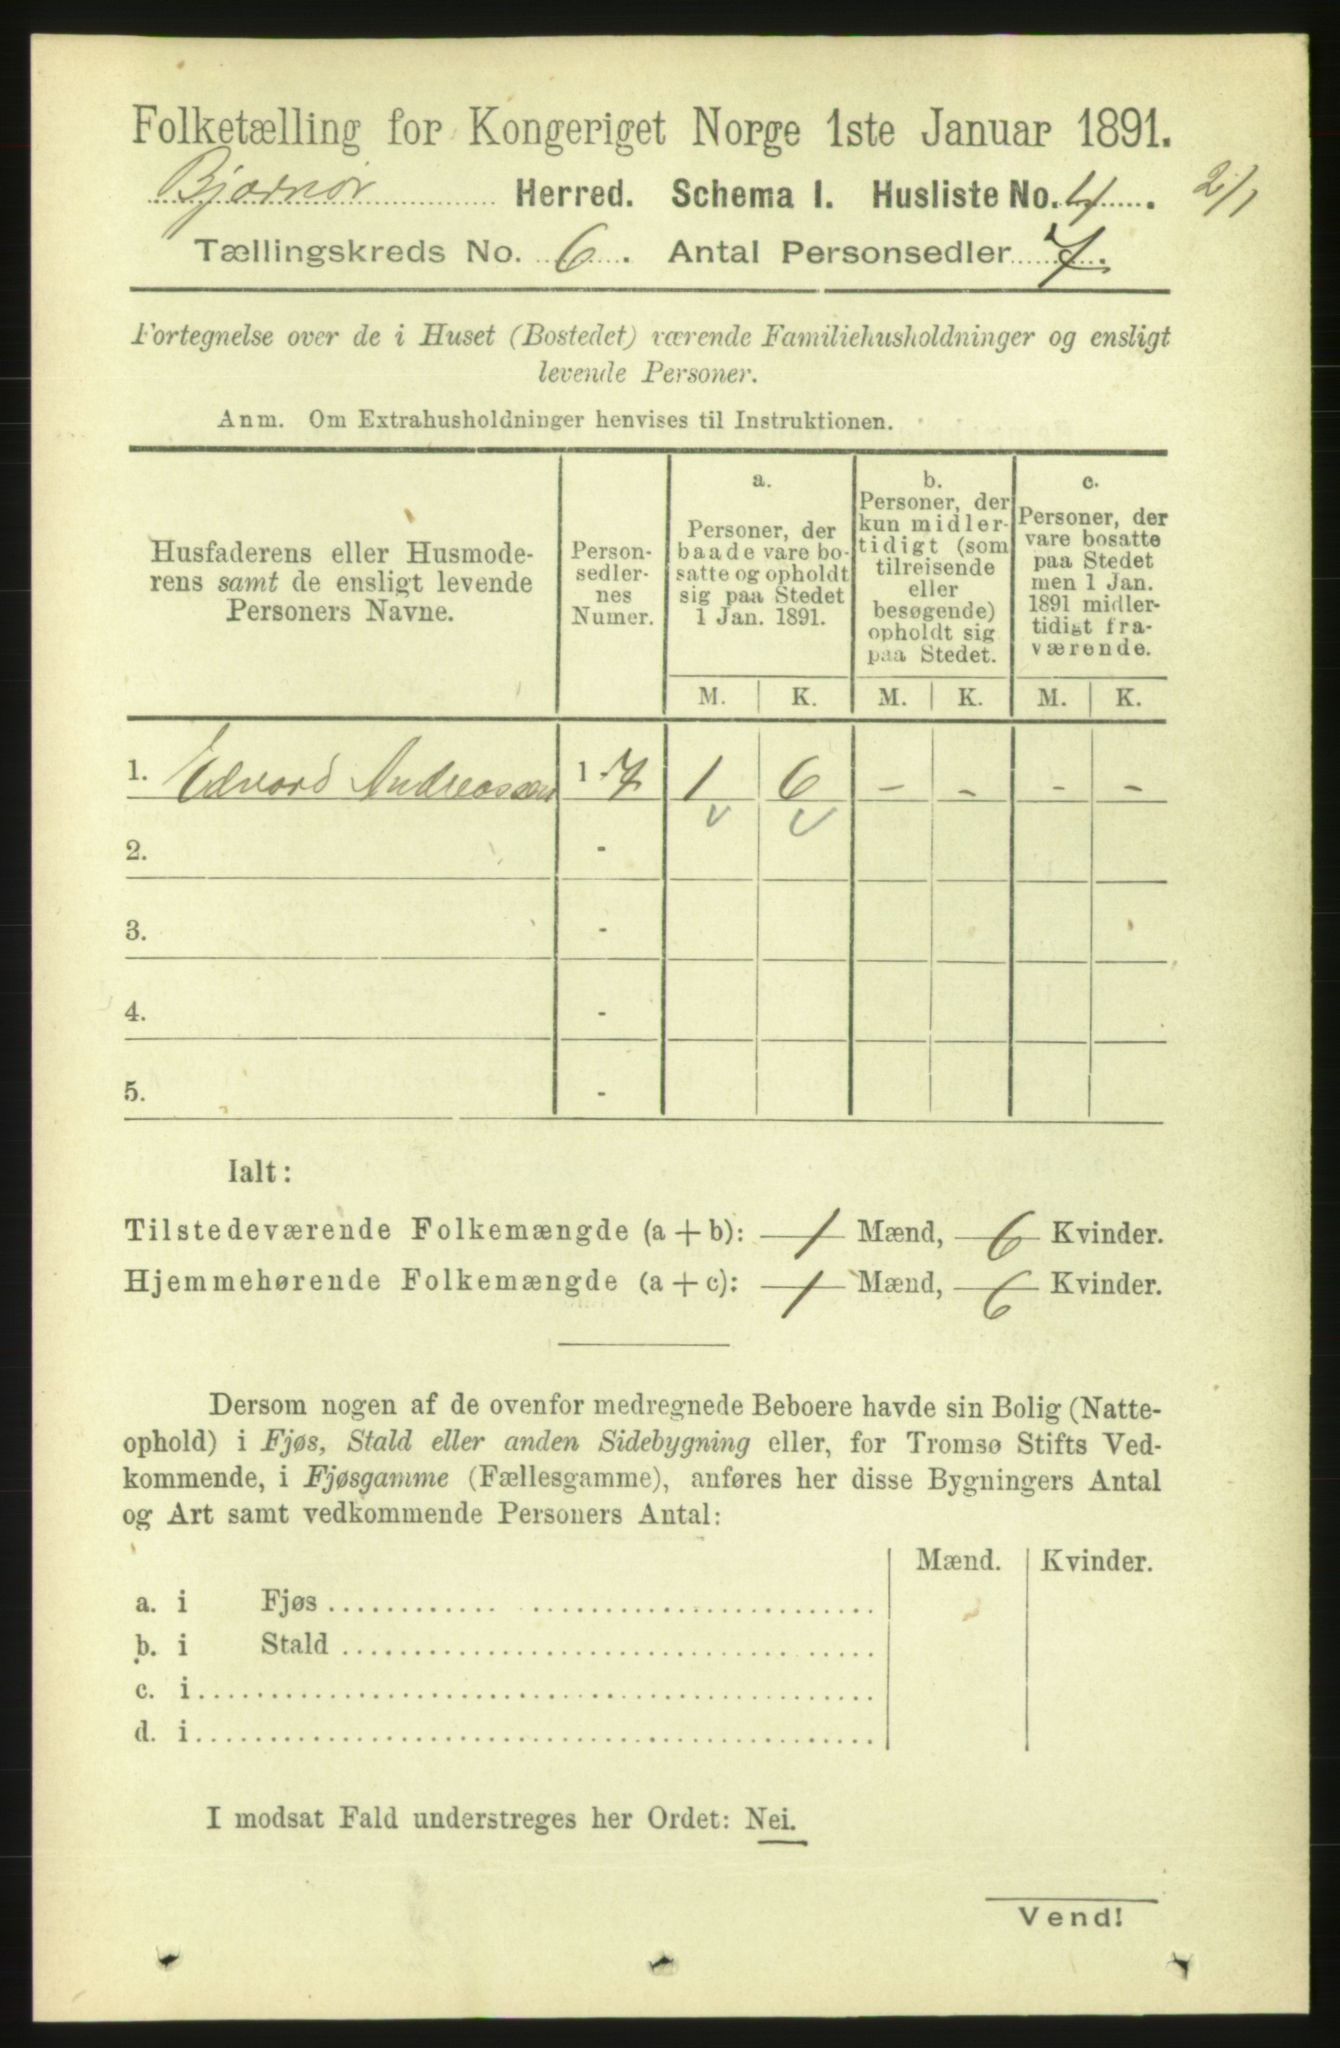 Folketælling for Kongeriget Norge 1ste Januar 1891.
Bjørnør Herred. Schema I. Husliste No. 4. 2/1
Tællingskreds No. 6. Antal Personsedler 7.
Fortegnelse over de i Huset (Bostedet) værende Familiehusholdninger og ensligt
levende Personer.
Anm. Om Extrahusholdninger henvises til Instruktionen.
Husfaderens eller Husmode-
rens samt de ensligt levende
Personers Navne.
Person-
sedler-
nes
Numer.
a.
Personer, der
baade vare bo-
satte og opholdt
sig paa Stedet
1 Jan. 1891.
b.
Personer, der
kun midler-
tidigt (som
tilreisende
eller
besøgende)
opholdt sig
paa Stedet.
c.
Personer, der
vare bosatte
paa Stedet
men 1 Jan.
1891 midler-
tidigt fra-
værende.
M. K. M. K. M. K.
1. Edvard Andreassen 1-7 1 6 - - - -
2. -
3. -
4. -
5. -
Ialt:
Tilstedeværende Folkemængde (a + b): 1 Mænd, 6 Kvinder.
Hjemmehørende Folkemængde (a + c): 1 Mænd, 6 Kvinder.
Dersom nogen af de ovenfor medregnede Beboere havde sin Bolig (Natte-
ophold) i Fjøs, Stald eller anden Sidebygning eller, for Tromsø Stifts Ved-
kommende, i Fjøsgamme (Fællesgamme), anføres her disse Bygningers Antal
og Art samt vedkommende Personers Antal:
Mænd. Kvinder.
a. i Fjøs
b. i Stald
c. i
d. i
I modsat Fald understreges her Ordet: Nei.
Vend!